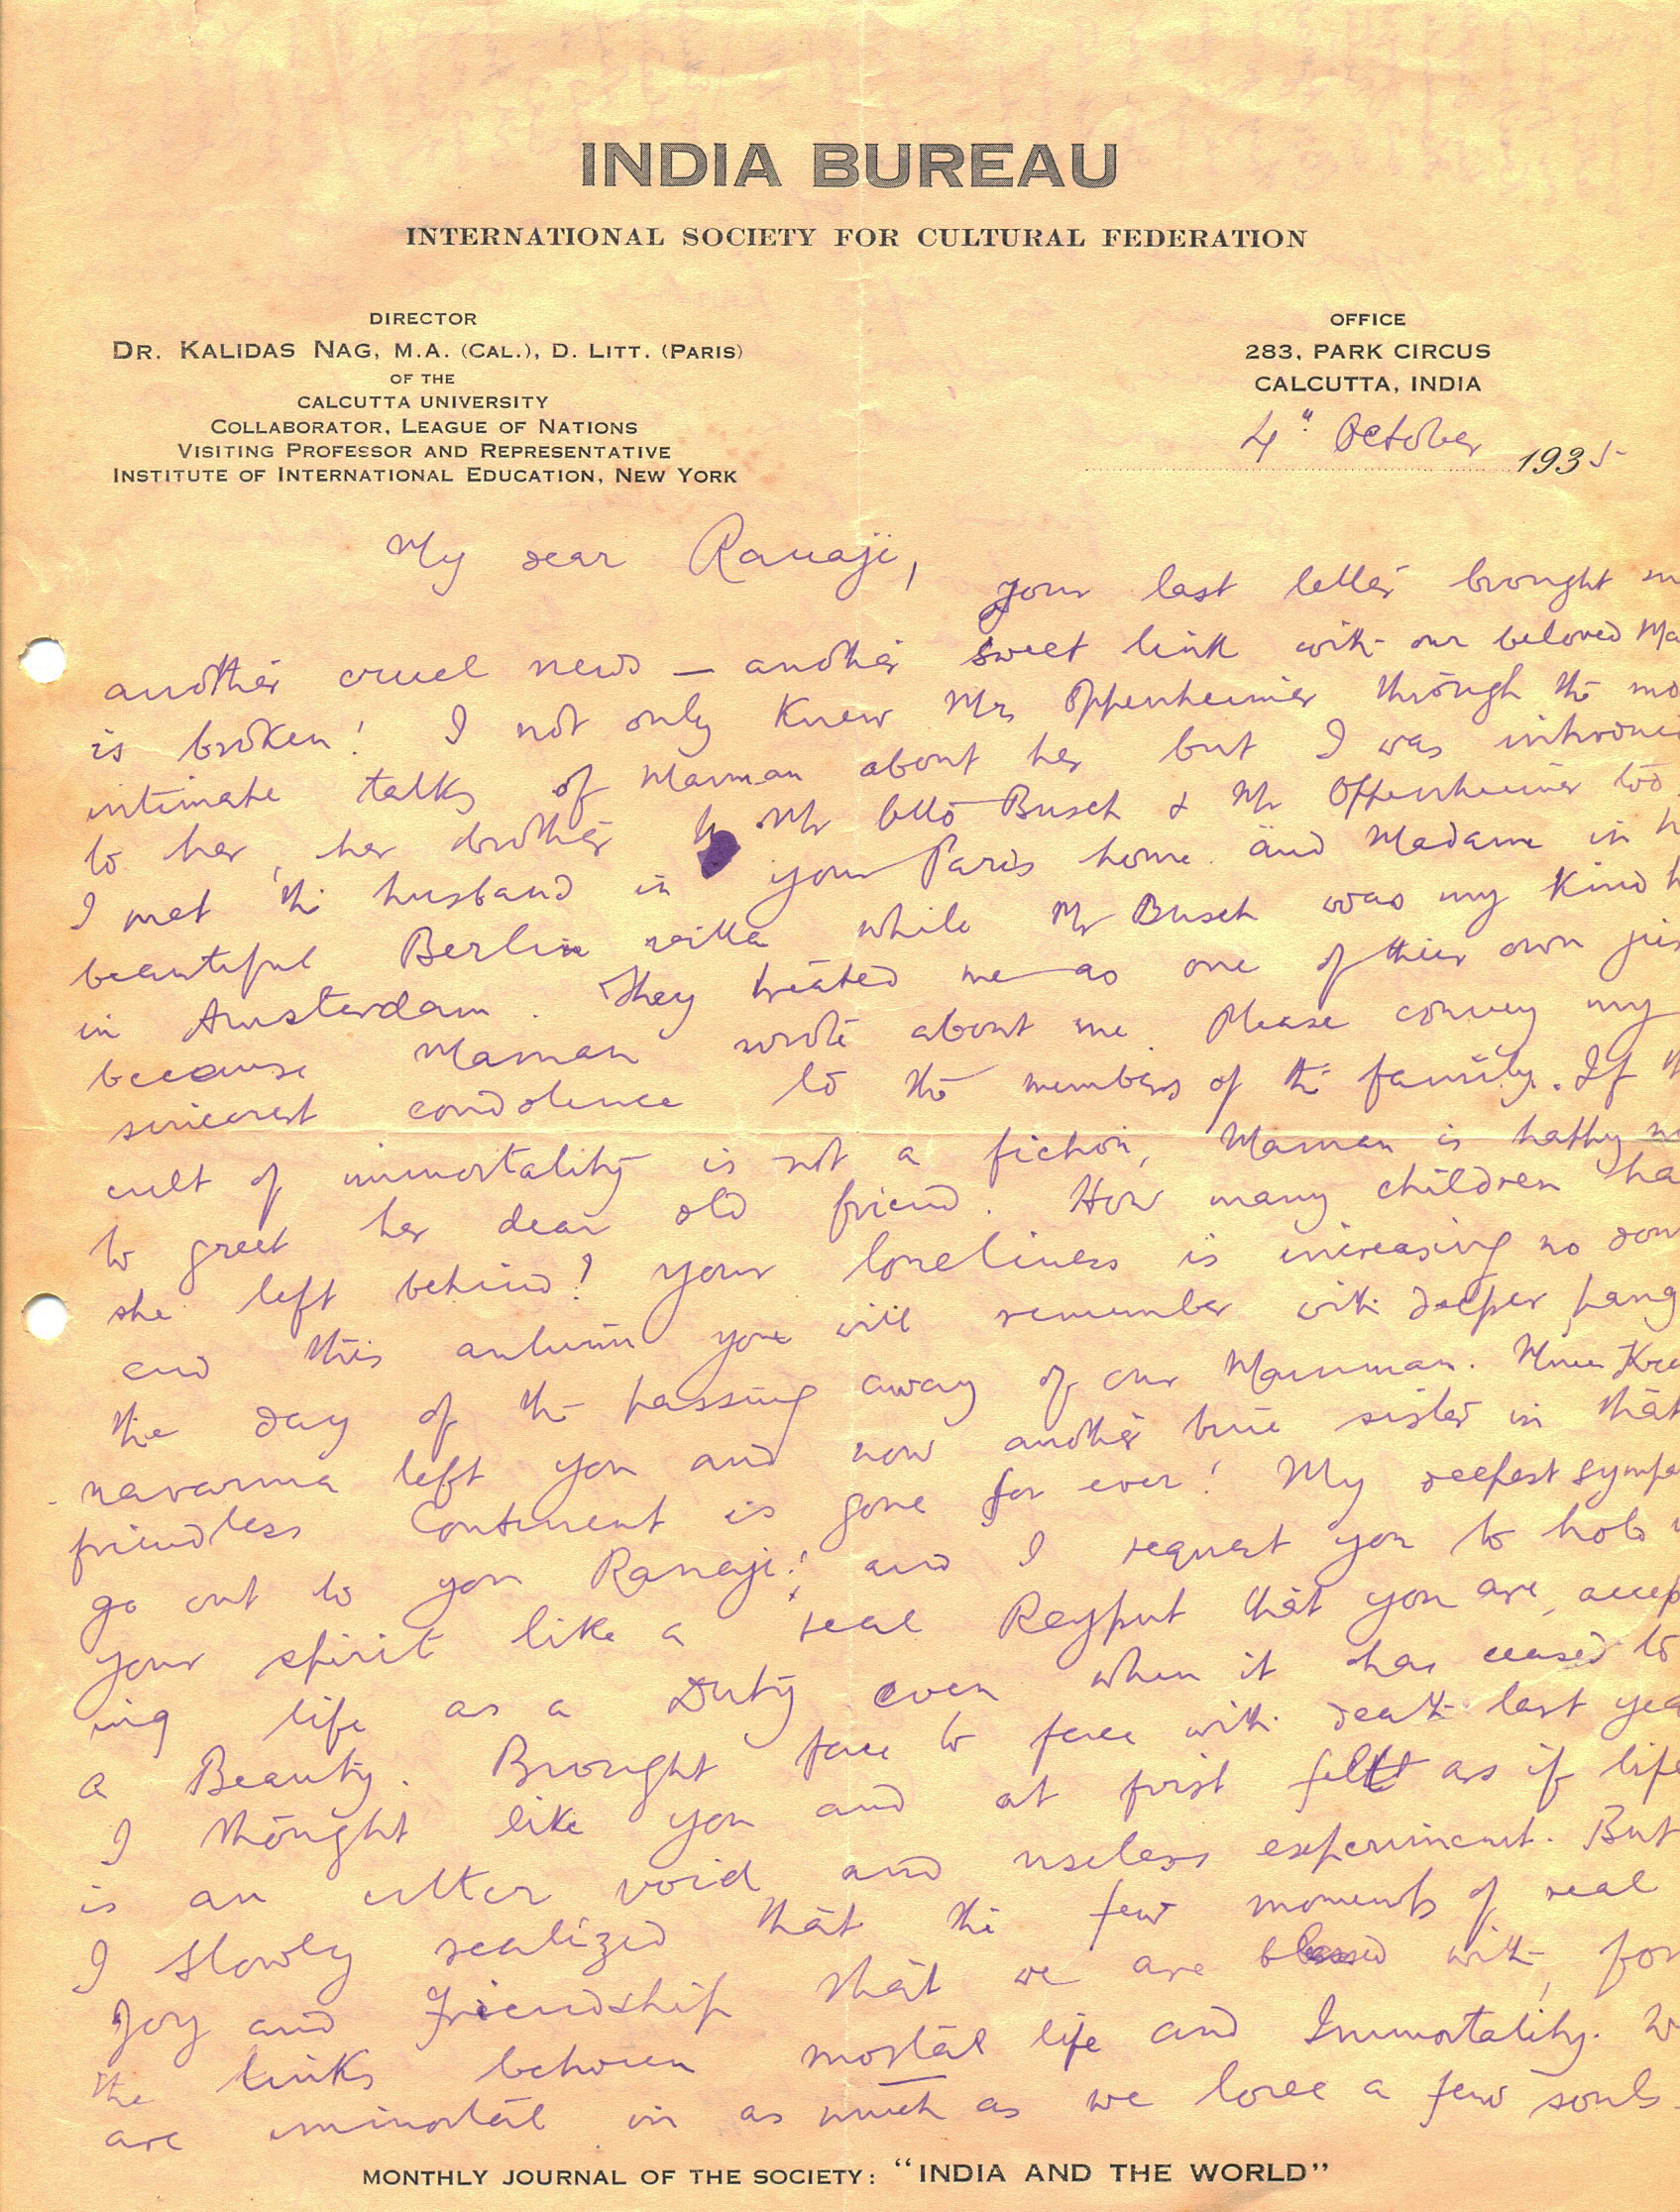 INDIA BUREAU
INTERNATIONAL SOCIETY FOR CULTURAL FEDERATION
DIRECTOR
DR. KALIDAS NAG, M.A. (CAL.), D. LITT. (PARIS)
OF THE
CALCUTTA UNIVERSITY
COLLABORATOR, LEAGUE OF NATIONS
VISITING PROFESSOR AND REPRESENTATIVE
INSTITUTE OF INTERNATIONAL EDUCATION, NEW YORK
OFFICE
283, PARK CIRCUS
CALCUTTA, INDIA
4" October 1935
My dear Ranaji,
your last letter brought
another cruel news — another sweet link with our beloved Ma
is broken! I not only knew Mrs Oppenheimer through the mo
intimate talks of Maman about her but I was introduced
to her, her brother Mr Otto Busch & Mr Oppenheimer too.
I met the husband in your Paris home and Madame in h
beautiful Berlin villa while Mr Busch was my kind h
in Amsterdam. They treated me as one of their own jus
because Maman wrote about me. Please convey my
sincerest condolence to the members of the family. If th
cult of immortality is not a fiction, Maman is happy
to greet her dear old friend. How many children ha
she left behind? your loneliness is increasing no dou
and this autumn you will remember with deeper pang
the day of the passing away of our Mamman. Mme Kri
navarma left you and now another true sister in that
friendless Continent is gone for ever! My deepest sympa
go out to you Ranaji! and I request you to hold
your spirit like a real Rajput that you are, accep
ing life as a Duty even when it has ceased to
a Beauty. Brought face to face with death last yea
I thought like you and at first felt as if life
is an utter void and useless experiment. But
I slowly realized that the few moments of real
Joy and Friendship that we are blessed with, for
the links between mortal life and Immortality. W
are immortal in as much as we love a few souls.
MONTHLY JOURNAL OF THE SOCIETY: "INDIA AND THE WORLD"